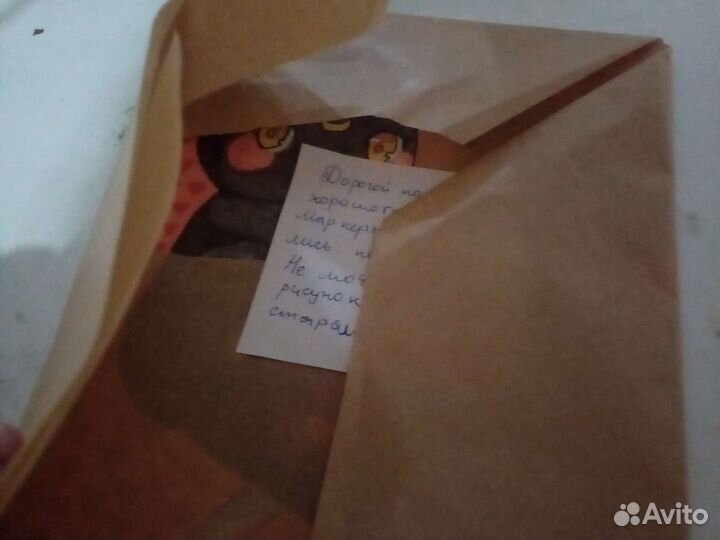 Дорогой по
хорошог
маркеры
лись н
Не моч
рисунок
стыря
Avito